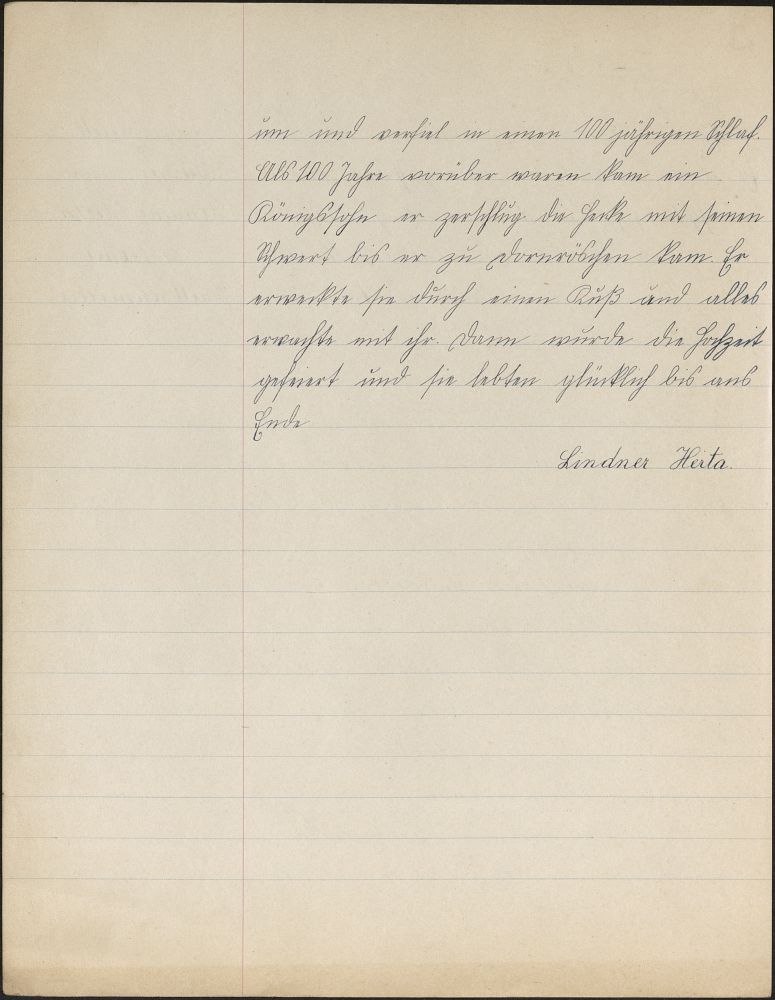 um und verfiel in einen 100 jährigen Schlaf.
Als 100 Jahre vorüber waren kam ein
Königssohn er zerschlug die Hecke mit seinen
Schwert bis er zu Dornröschen kam. Er
erweckte sie durch einen Kuß und alles
erwachte mit ihr. Dann wurde die Hochzeit
gefeiert und sie lebten glücklich bis ans
Ende
Lindner Herta.